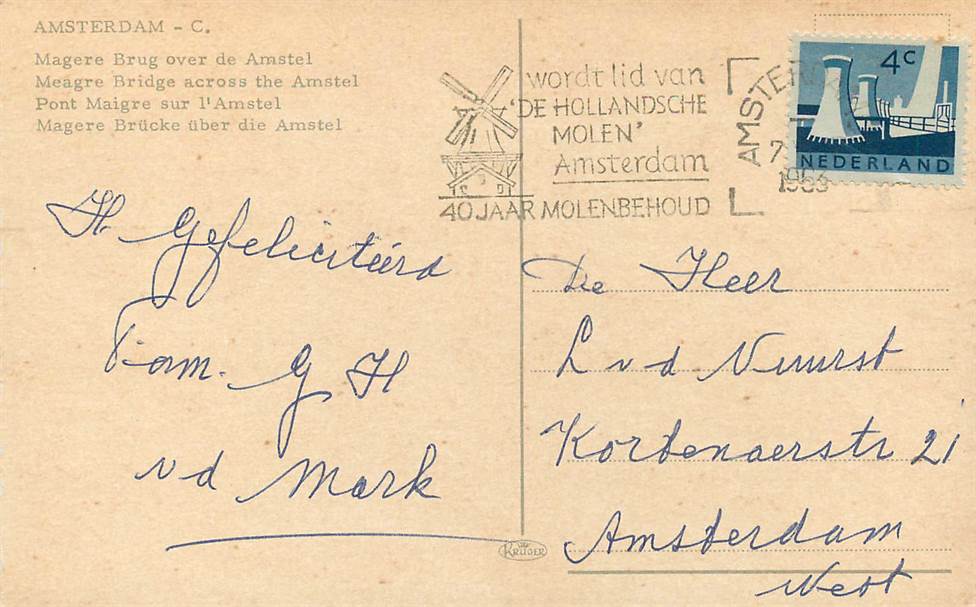 AMSTERDAM - C.
Magere Brug over de Amstel
Meagre Bridge across the Amstel
Pont Maigre sur l'Amstel
Magere Brücke über die Amstel
wordt lid van
'DE HOLLANDSCHE
MOLEN'
Amsterdam
40 JAAR MOLENBEHOUD
AMSTER
7
1963
4c
NEDERLAND
H. Gefeliciteerd
Fam. G H
v d Mark
De Heer
L v d Vuurst
Kortenaerstr 21
Amsterdam
West
KRÜGER